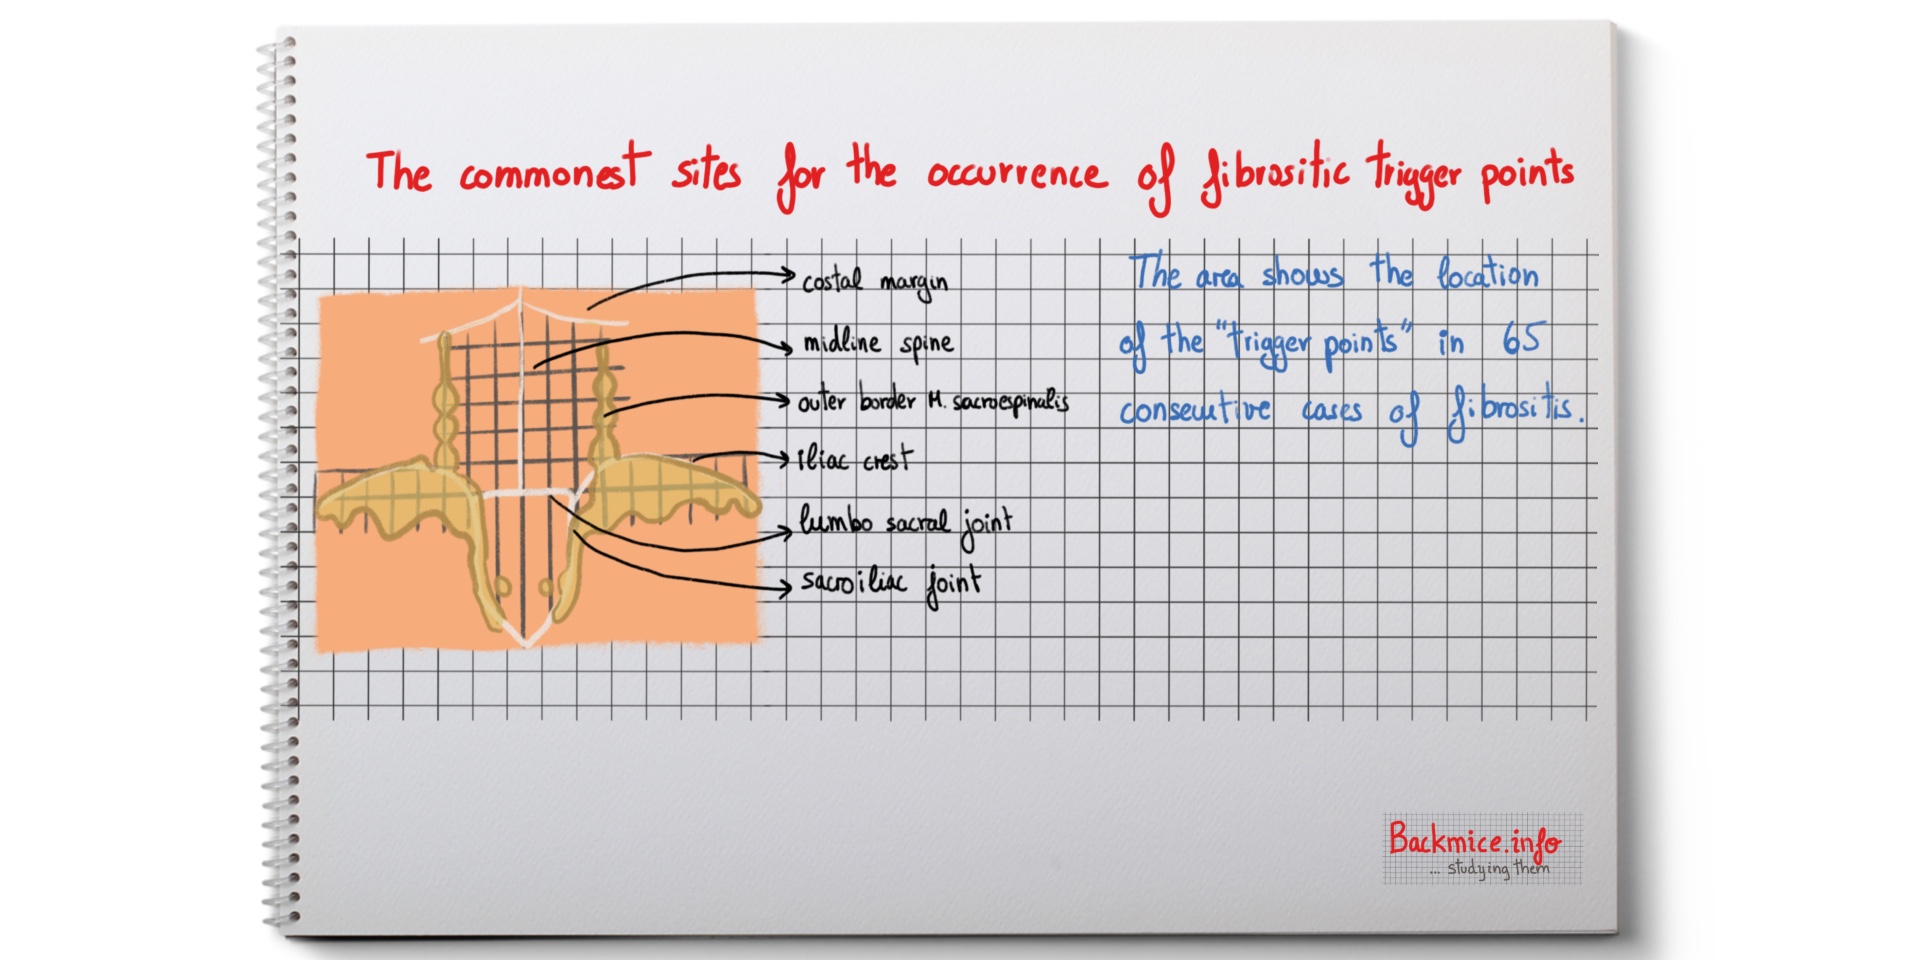 The commonest sites for the occurrence of fibrositic trigger points
costal margin
midline spine
outer border M. sacroespinalis
iliac crest
lumbo sacral joint
sacroiliac joint
The area shows the location
of the "trigger points" in 65
consecutive cases of fibrositis.
Backmice.info
... studying them